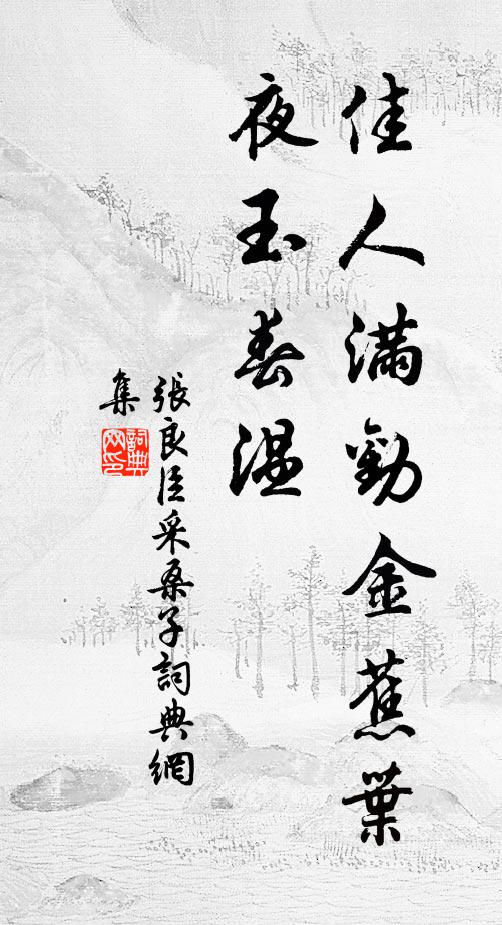 佳人滿勸金蕉葉
夜玉春溫
張良臣采桑子詞典網
集
詞典網印